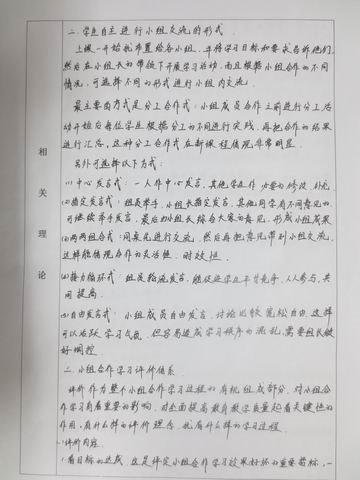 相关理论
二、学生自主进行小组交流的形式
上课一开始就布置给各小组,并将学习目标和要求告诉他们,
然后在小组长的带领下开展学习活动,而且根据小组合作的不同
情况,可选择不同的形式进行小组内交流。
最主要的方式是分工合作式:小组成员合作之前进行分工活
动开始后每位学生根据分工的不同进行实践,再把合作的结果
进行汇总,这种分工合作式在新课程体现非常明显。
另外可选择以下方式:
(1)中心发言式:一人作中心发言,其他学生作必要的修改、补充
(2)指定发言式:组员举手,小组长指定发言,其他同学有不同意见的
可继续举手发言,最后由小组长综合大家的意见,形成小组成果
(3)两两组合式:同桌先进行交流,然后再把意见带到小组交流,
这样能体现合作的灵活性、时效性
(4)接力循环式:组员轮流发言,能促使学生平等竞争,人人参与,共
同提高。
(5)自由发言式:小组成员自由发言,讨论比较宽松自由,这样
可以活跃学习气氛,但容易造成学习秩序的混乱,需要组长做
好调控。
三、小组合作学习评价体系
评价作为整个小组合作学习过程的有机组成部分,对小组合
作学习有着重要的影响,对全面提高教育教学质量起着关键性的
作用,有什么样的评价理念,就有什么样的学习过程。
1.评价内容
(1)看目标的达成,这是评定小组合作学习效果好坏的重要指标,一